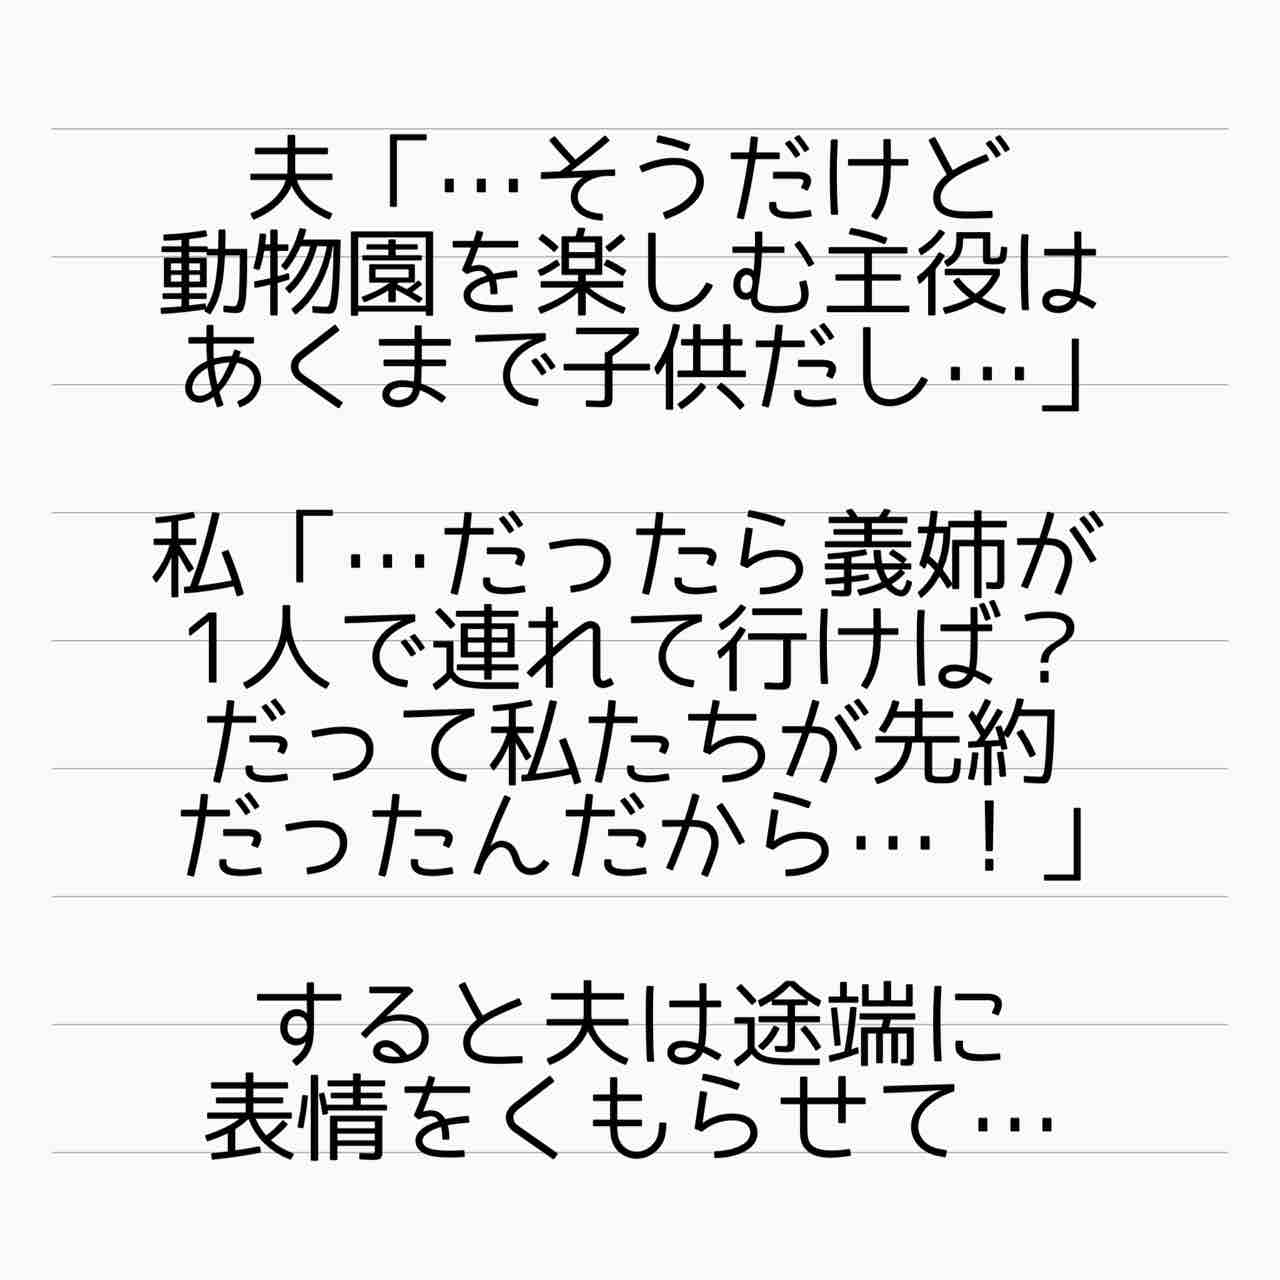 夫「…そうだけど
動物園を楽しむ主役は
あくまで子供だし…」
私「…だったら義姉が
1人で連れて行けば？
だって私たちが先約
だったんだから…！」
すると夫は途端に
表情をくもらせて…